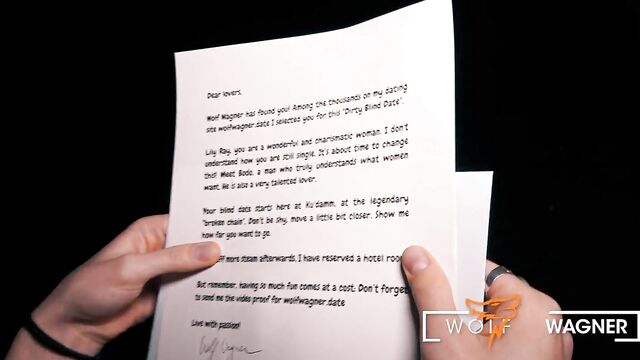 Dear lovers,
Wolf Wagner has found you! Among the thousands on my dating
site wolfwagner.date I selected you for this "Dirty Blind Date".
Lily Ray, you are a wonderful and charismatic woman. I don't
understand how you are still single. It's about time to change
this! Meet Bodo, a man who truly understands what women
want. He is also a very talented lover.
Your blind date starts here at Ku'damm, at the legendary
"broken chain". Don't be shy, move a little bit closer. Show me
how far you want to go.
off more steam afterwards, I have reserved a hotel room
But remember, having so much fun comes at a cost: Don't forget
to send me the video proof for wolfwagner.date
Live with passion!
Wolf Wagner
WOLF WAGNER